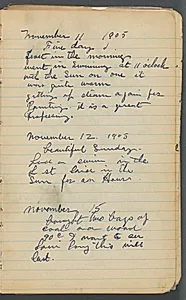 November 11 1905
Fine day
frost in the morning
went in swimming at 11 o'clock
with the Sun on one it
was quite warm
getting up steam again for
Painting. it is a great
November 12. 1905
beautiful Sunday.
Had a swim in the
in the
Sun for an Hour
November 15
bought two bags of
coal and wood
90¢ I want to see
how long this will
last.